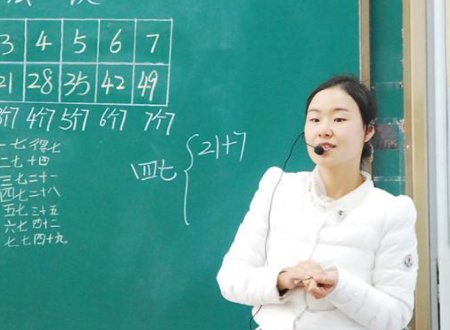 3 4 5 6 7
21 28 35 42 49
3个7 4个7 5个7 6个7 7个7
一七得七
二七十四
三七二十一
四七二十八
五七三十五
六七四十二
七七四十九
四七{21+7